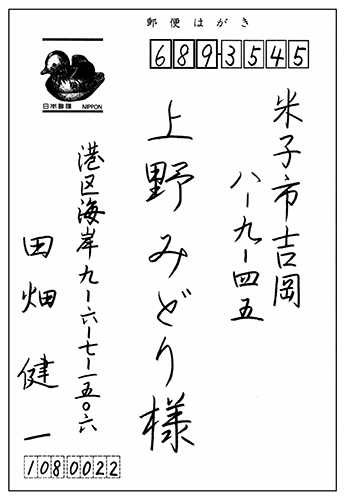 郵便はがき
689-3545
日本郵便 NIPPON
米子市吉岡
八ー九ー四五
上野みどり様
港区海岸九ー六ー七ー一五〇六
田畑健一
1080022